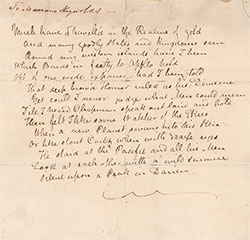 To Mariane Reynolds
Much have I travell'd in the Realms of gold
and many goodly states and Kingdoms seen
Round many western islands have I been
which Bards in fealty to Apollo hold
Oft of one wide expanse had I been told
That deep brow'd Homer ruled as his Demesne
Yet could I never judge what Men could mean
Till I heard Chapman speak out loud and bold
Then felt I like some Watcher of the Skies
When a new Planet swims into his Ken
Or like stout Cortez when with eagle eyes
He stared at the Pacific and all his Men
Look'd at each other with a wild surmise
Silent upon a Peak in Darien